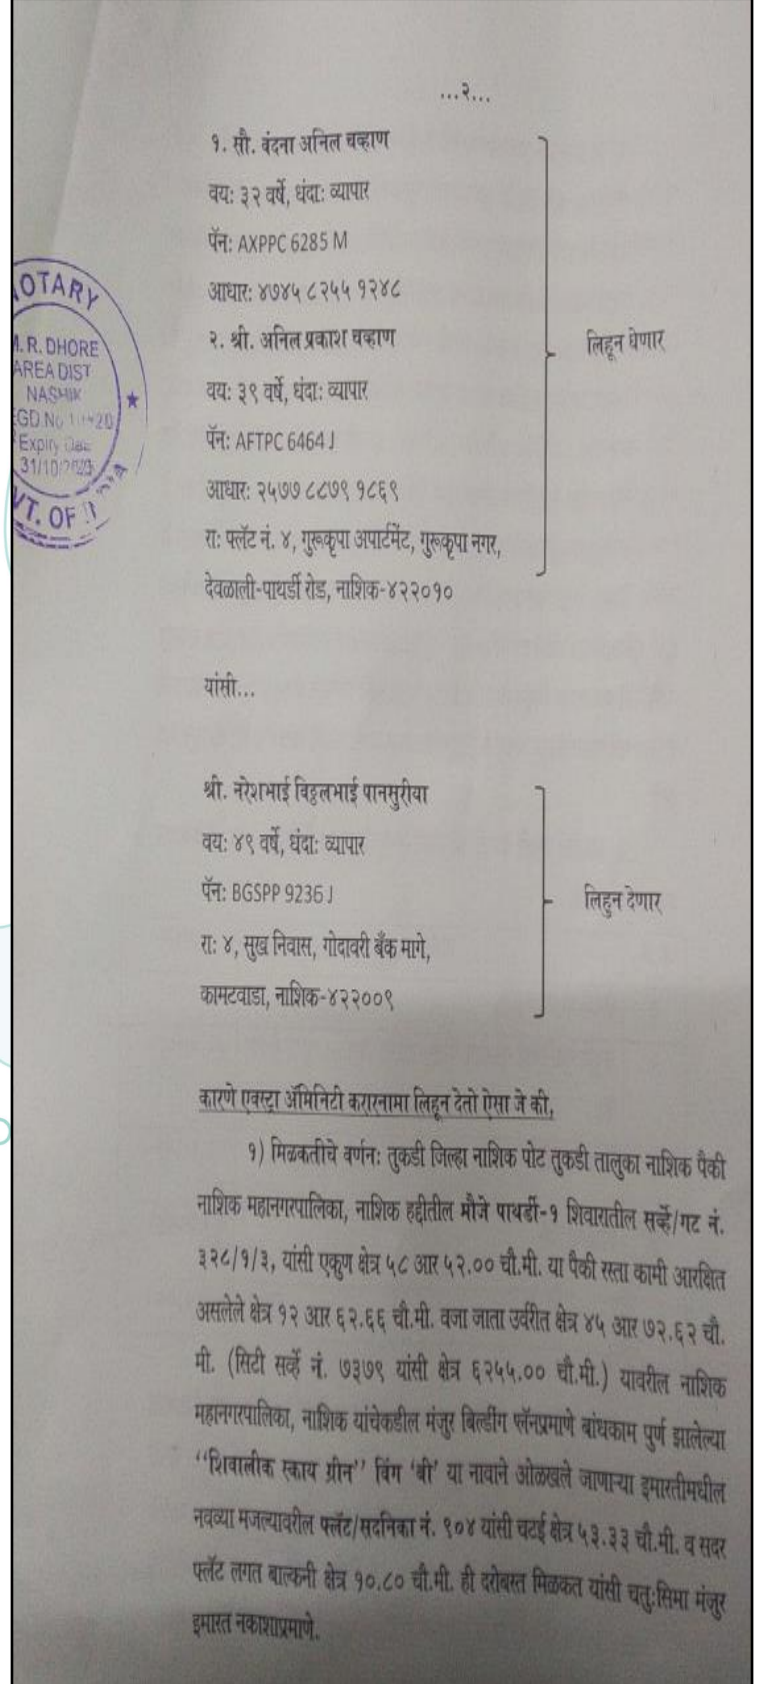 ...२...
१. सौ. वंदना अनिल चव्हाण
वय: ३२ वर्षे, धंदा: व्यापार
पॅन: AXPPC 6285 M
आधार: ४७४५ ८२५५ १२४८
२. श्री. अनिल प्रकाश चव्हाण
वय: ३९ वर्षे, धंदा: व्यापार
पॅन: AFTPC 6464 J
आधार: २५७७ ८८७९ १८६९
रा: फ्लॅट नं. ४, गुरूकृपा अपार्टमेंट, गुरूकृपा नगर,
देवळाली-पाथर्डी रोड, नाशिक-४२२०१०
लिहून घेणार
OTARY
R. DHORE
AREA DIST
NASHIK
GD.No
Expiry
31/10/
VT. OF
यांसी...
श्री. नरेशभाई विठ्ठलभाई पानसुरीया
वय: ४९ वर्षे, धंदा: व्यापार
पॅन: BGSPP 9236 J
रा: ४, सुख निवास, गोदावरी बँक मागे,
कामटवाडा, नाशिक-४२२००९
लिहुन देणार
कारणे एक्स्ट्रा ॲमिनिटी करारनामा लिहून देतो ऐसा जे की,
१) मिळकतीचे वर्णन: तुकडी जिल्हा नाशिक पोट तुकडी तालुका नाशिक पैकी
नाशिक महानगरपालिका, नाशिक हद्दीतील मौजे पाथर्डी-१ शिवारातील सर्व्हे/गट नं.
३२८/१/३, यांसी एकुण क्षेत्र ५८ आर ५२.०० चौ.मी. या पैकी रस्ता कामी आरक्षित
असलेले क्षेत्र १२ आर ६२.६६ चौ.मी. वजा जाता उर्वरीत क्षेत्र ४५ आर ७२.६२ चौ.
मी. (सिटी सर्व्हे नं. ७३७९ यांसी क्षेत्र ६२५५.०० चौ.मी.) यावरील नाशिक
महानगरपालिका, नाशिक यांचेकडील मंजुर बिल्डींग प्लॅनप्रमाणे बांधकाम पुर्ण झालेल्या
''शिवालीक स्काय ग्रीन'' विंग 'बी' या नावाने ओळखले जाणाऱ्या इमारतीमधील
नवव्या मजल्यावरील फ्लॅट/सदनिका नं. ९०४ यांसी चटई क्षेत्र ५३.३३ चौ.मी. व सदर
फ्लॅट लगत बाल्कनी क्षेत्र १०.८० चौ.मी. ही दरोबस्त मिळकत यांसी चतु:सिमा मंजुर
इमारत नकाशाप्रमाणे.